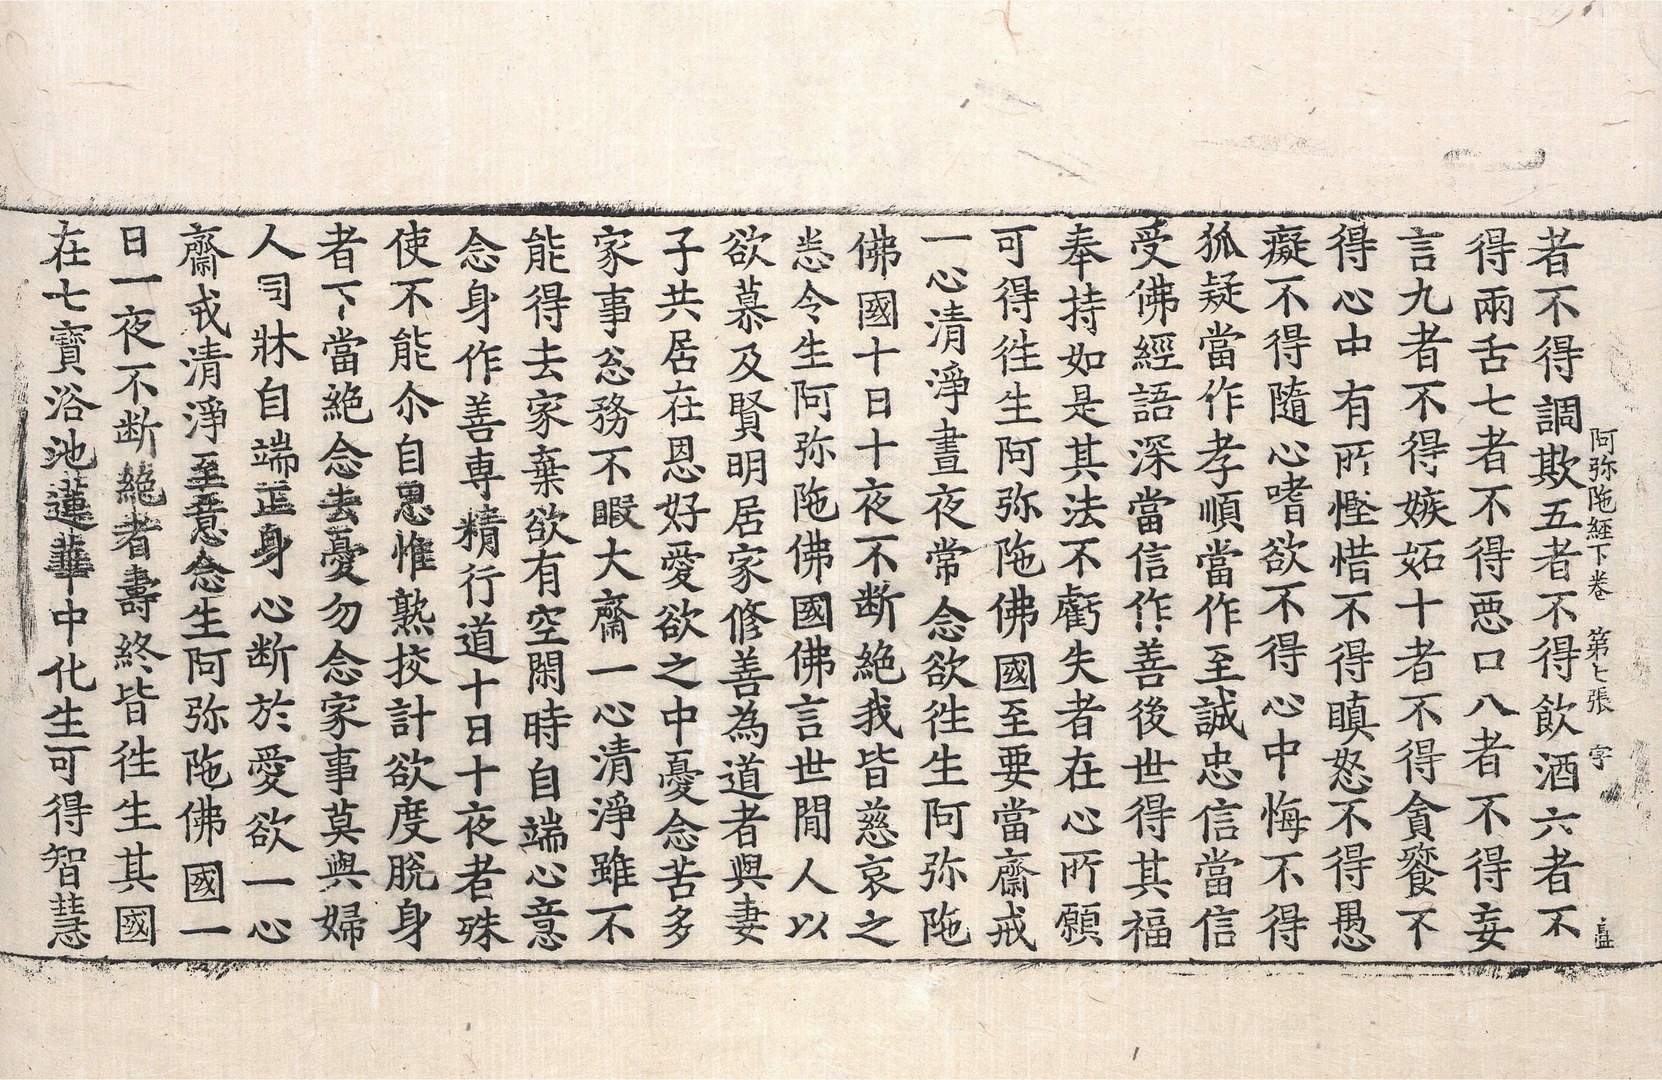 阿弥陁經下卷 第七張 字
者不得調欺五者不得飲酒六者不
得兩舌七者不得惡口八者不得妄
言九者不得嫉妬十者不得貪饕不
得心中有所慳惜不得瞋怒不得愚
癡不得隨心嗜欲不得心中悔不得
狐疑當作孝順當作至誠忠信當信
受佛經語深當信作善後世得其福
奉持如是其法不虧失者在心所願
可得徃生阿弥陁佛國至要當齋戒
一心清淨晝夜常念欲徃生阿弥陁
佛國十日十夜不断絶我皆慈哀之
悉令生阿弥陁佛國佛言世間人以
欲慕及賢明居家修善為道者與妻
子共居在恩好愛欲之中憂念苦多
家事忩務不暇大齋一心清淨雖不
能得去家棄欲有空閑時自端心意
念身作善専精行道十日十夜者殊
使不能尒自思惟熟挍計欲度脫身
者下當絶念去憂勿念家事莫與婦
人同牀自端正身心断於愛欲一心
齋戒清淨至意念生阿弥陁佛國一
日一夜不断絶者壽終皆徃生其國
在七寶浴池蓮華中化生可得智慧